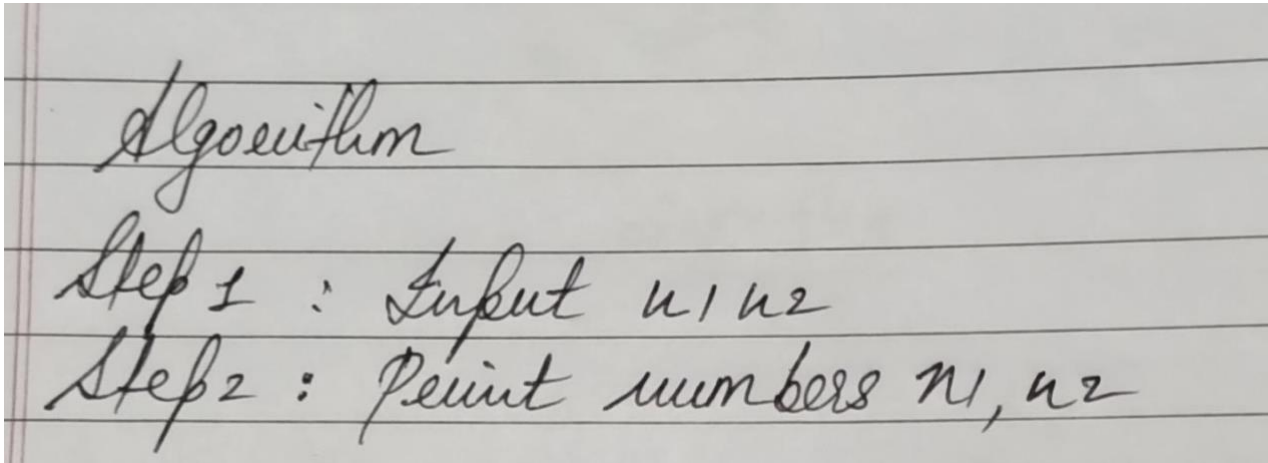 Algorithm
Step 1 : Input n1 n2
Step2 : Print numbers n1, n2